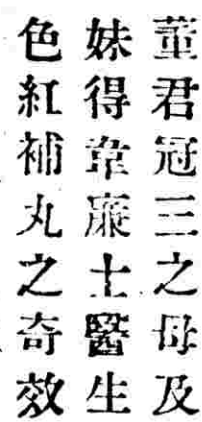 董君冠三之母及
妹得韋廉士醫生
色紅補丸之奇效